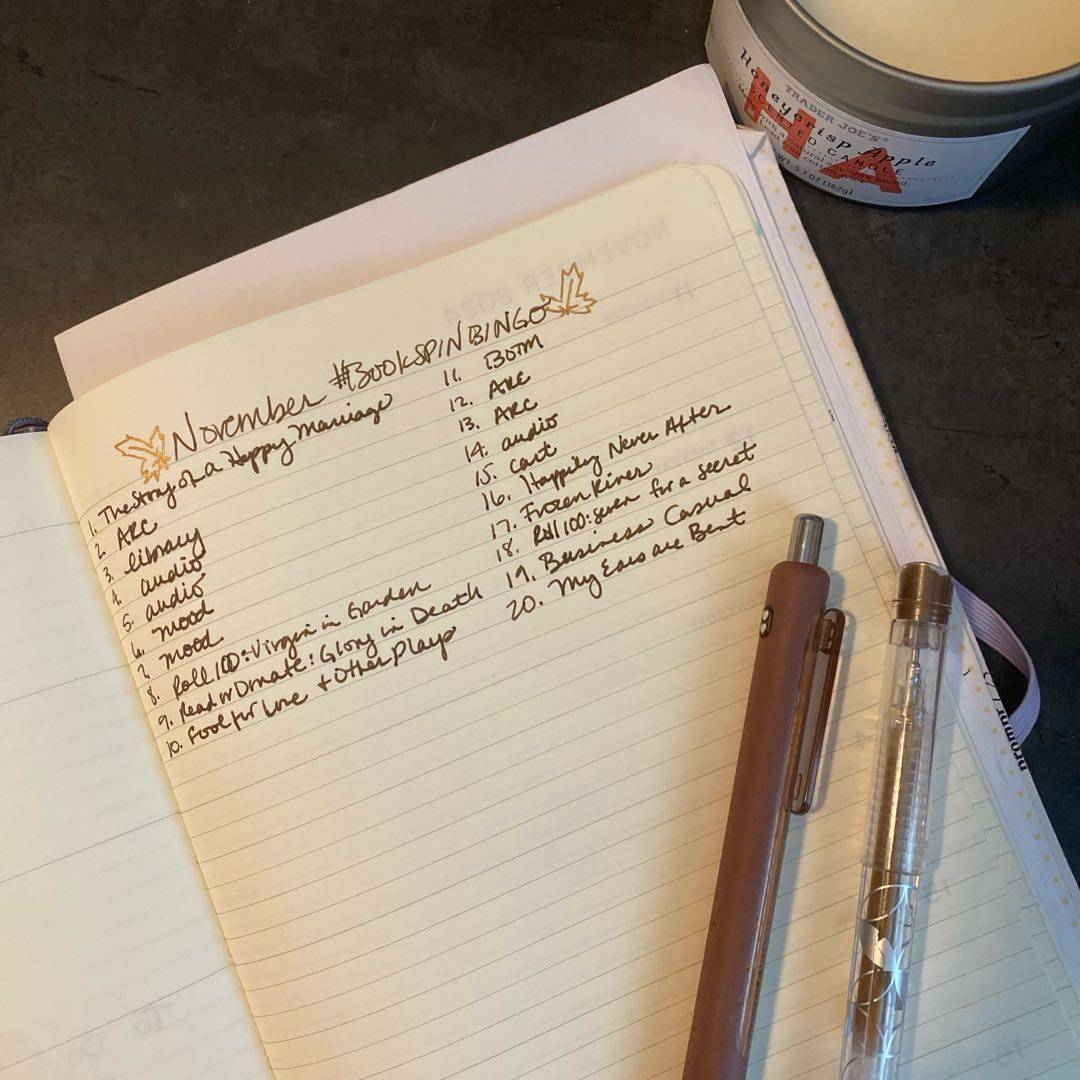 November #BOOKSPINBINGO
1. The Story of a Happy Marriage
2. ARC
3. library
4. audio
5. audio
6. mood
7. mood
8. Roll 100: Virgin in Garden
9. Read or Donate: Glory in Death
10. Fool for Love + Other Plays
11. BOTM
12. ARC
13. ARC
14. audio
15. cart
16. Happily Never After
17. Frozen River
18. Roll 100: Seven for a Secret
19. Business Casual
20. My Ears are Bent
TRADER JOE'S
Honeycrisp Apple
SCENTED CANDLE
HA
5.7 OZ (162g)
NOVEMBER 2024